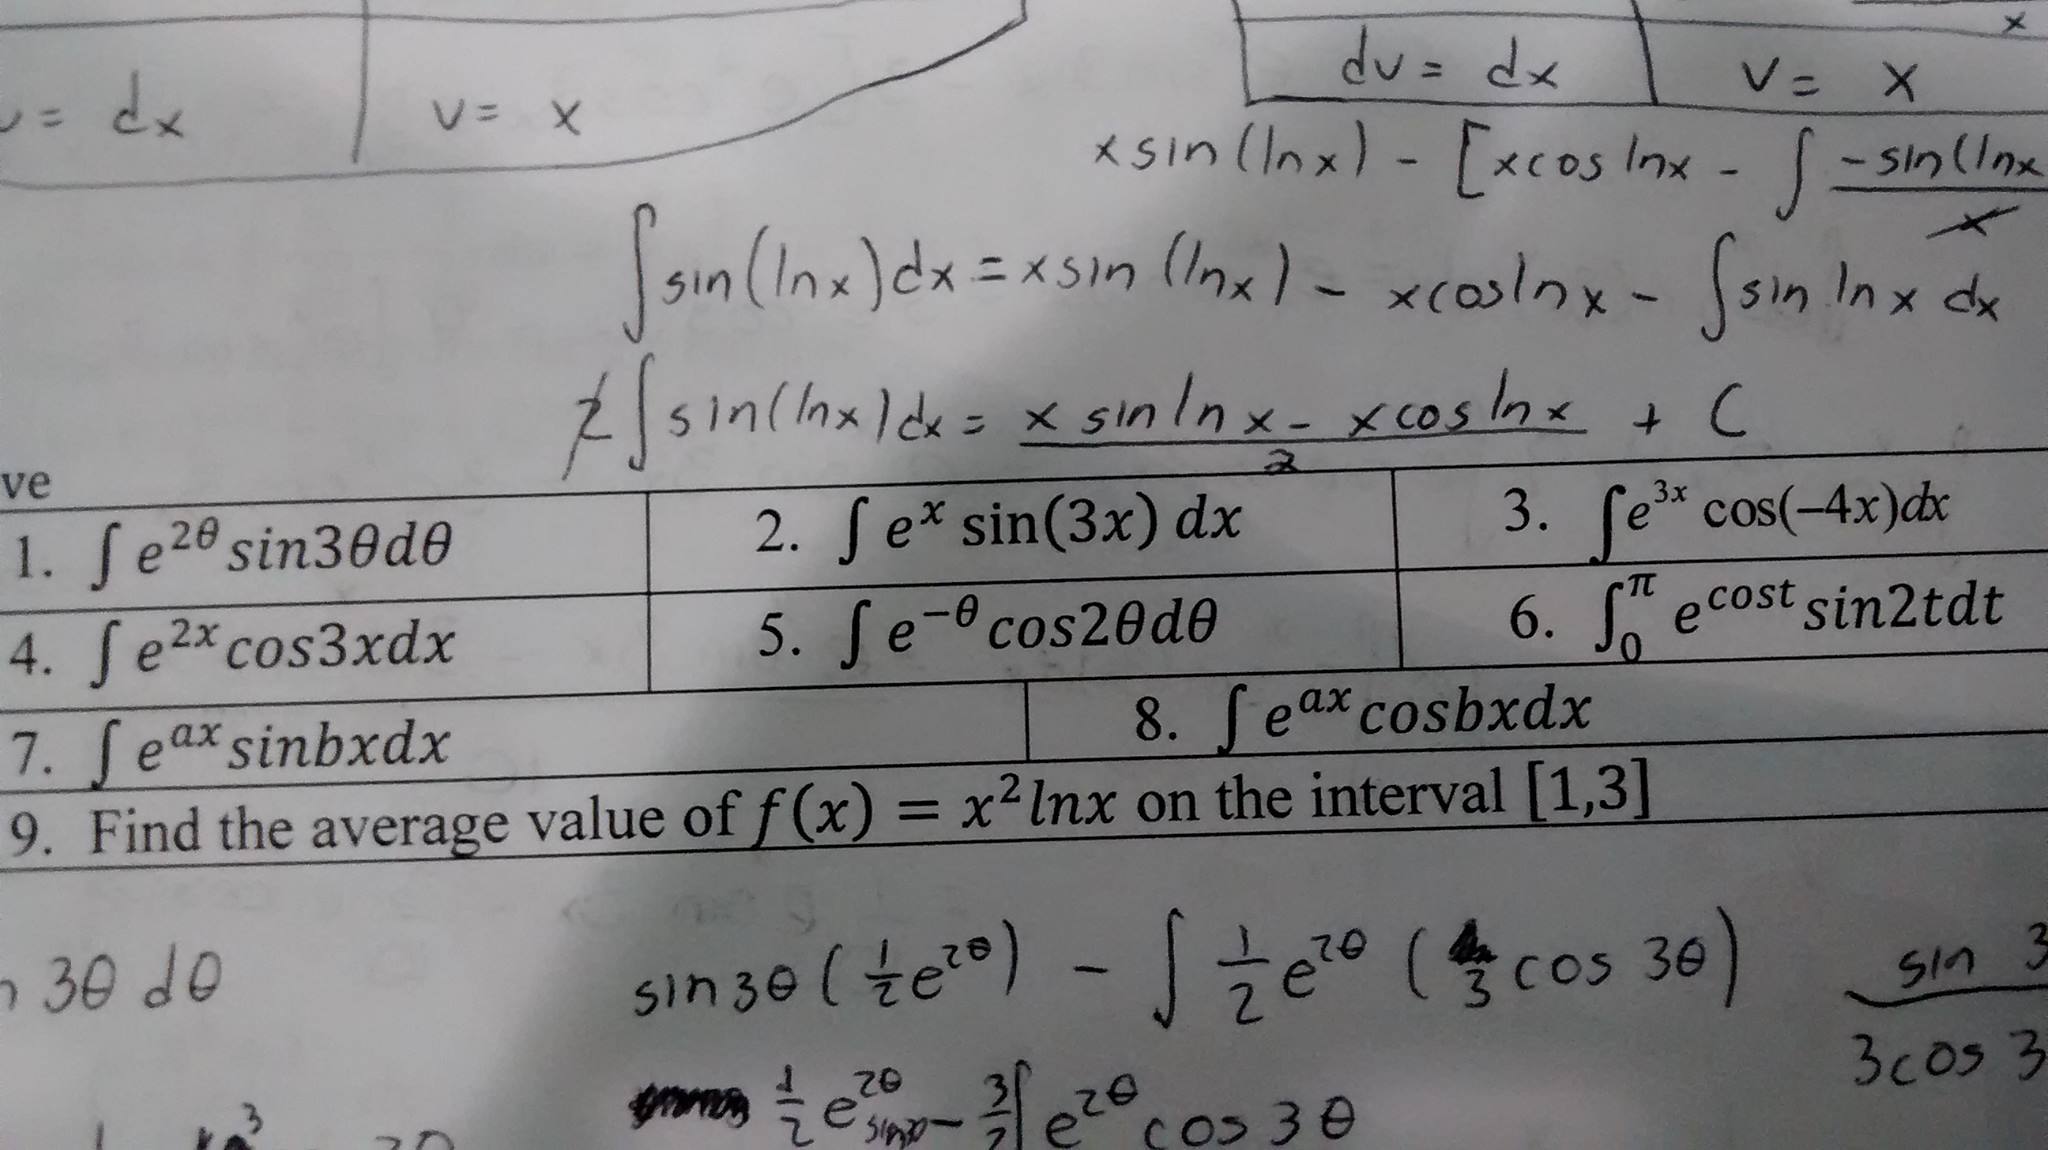 = dx
v = x
x
dv = dx
v = x
x sin (ln x) - [x cos ln x - ∫ -sin (ln x / x
∫ sin (ln x) dx = x sin (ln x) - x cos ln x - ∫ sin ln x dx
2 ∫ sin (ln x) dx = x sin ln x - x cos ln x / 2 + C
ve
1. ∫ e^{2θ} sin3θdθ
2. ∫ e^x sin(3x) dx
3. ∫e^{3x} cos(−4x)dx
4. ∫ e^{2x} cos3xdx
5. ∫ e^{−θ} cos2θdθ
6. ∫_0^π e^{cost} sin2tdt
7. ∫ e^{ax} sinbxdx
8. ∫ e^{ax} cosbxdx
9. Find the average value of f(x) = x² lnx on the interval [1,3]
3θ dθ
sin 3θ (1/2 e^{2θ}) - ∫ 1/2 e^{2θ} (3 cos 3θ)
sin 3
3 cos 3
1/2 e^{2θ} - 3/2 ∫ e^{2θ} cos 3θ